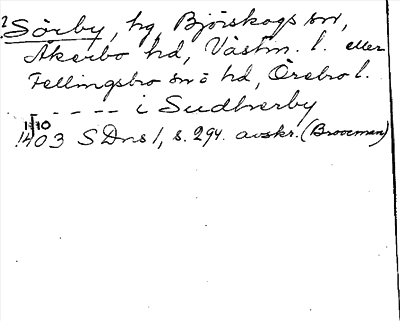 ? Sörby, hg, Björskogs sn,
Åkerbo hd, Västm. l. eller
Fellingsbro sn o hd, Örebro l.
- - - - - i Sudhærby
1403 SDns 1, s. 294. avskr. (Brooman)